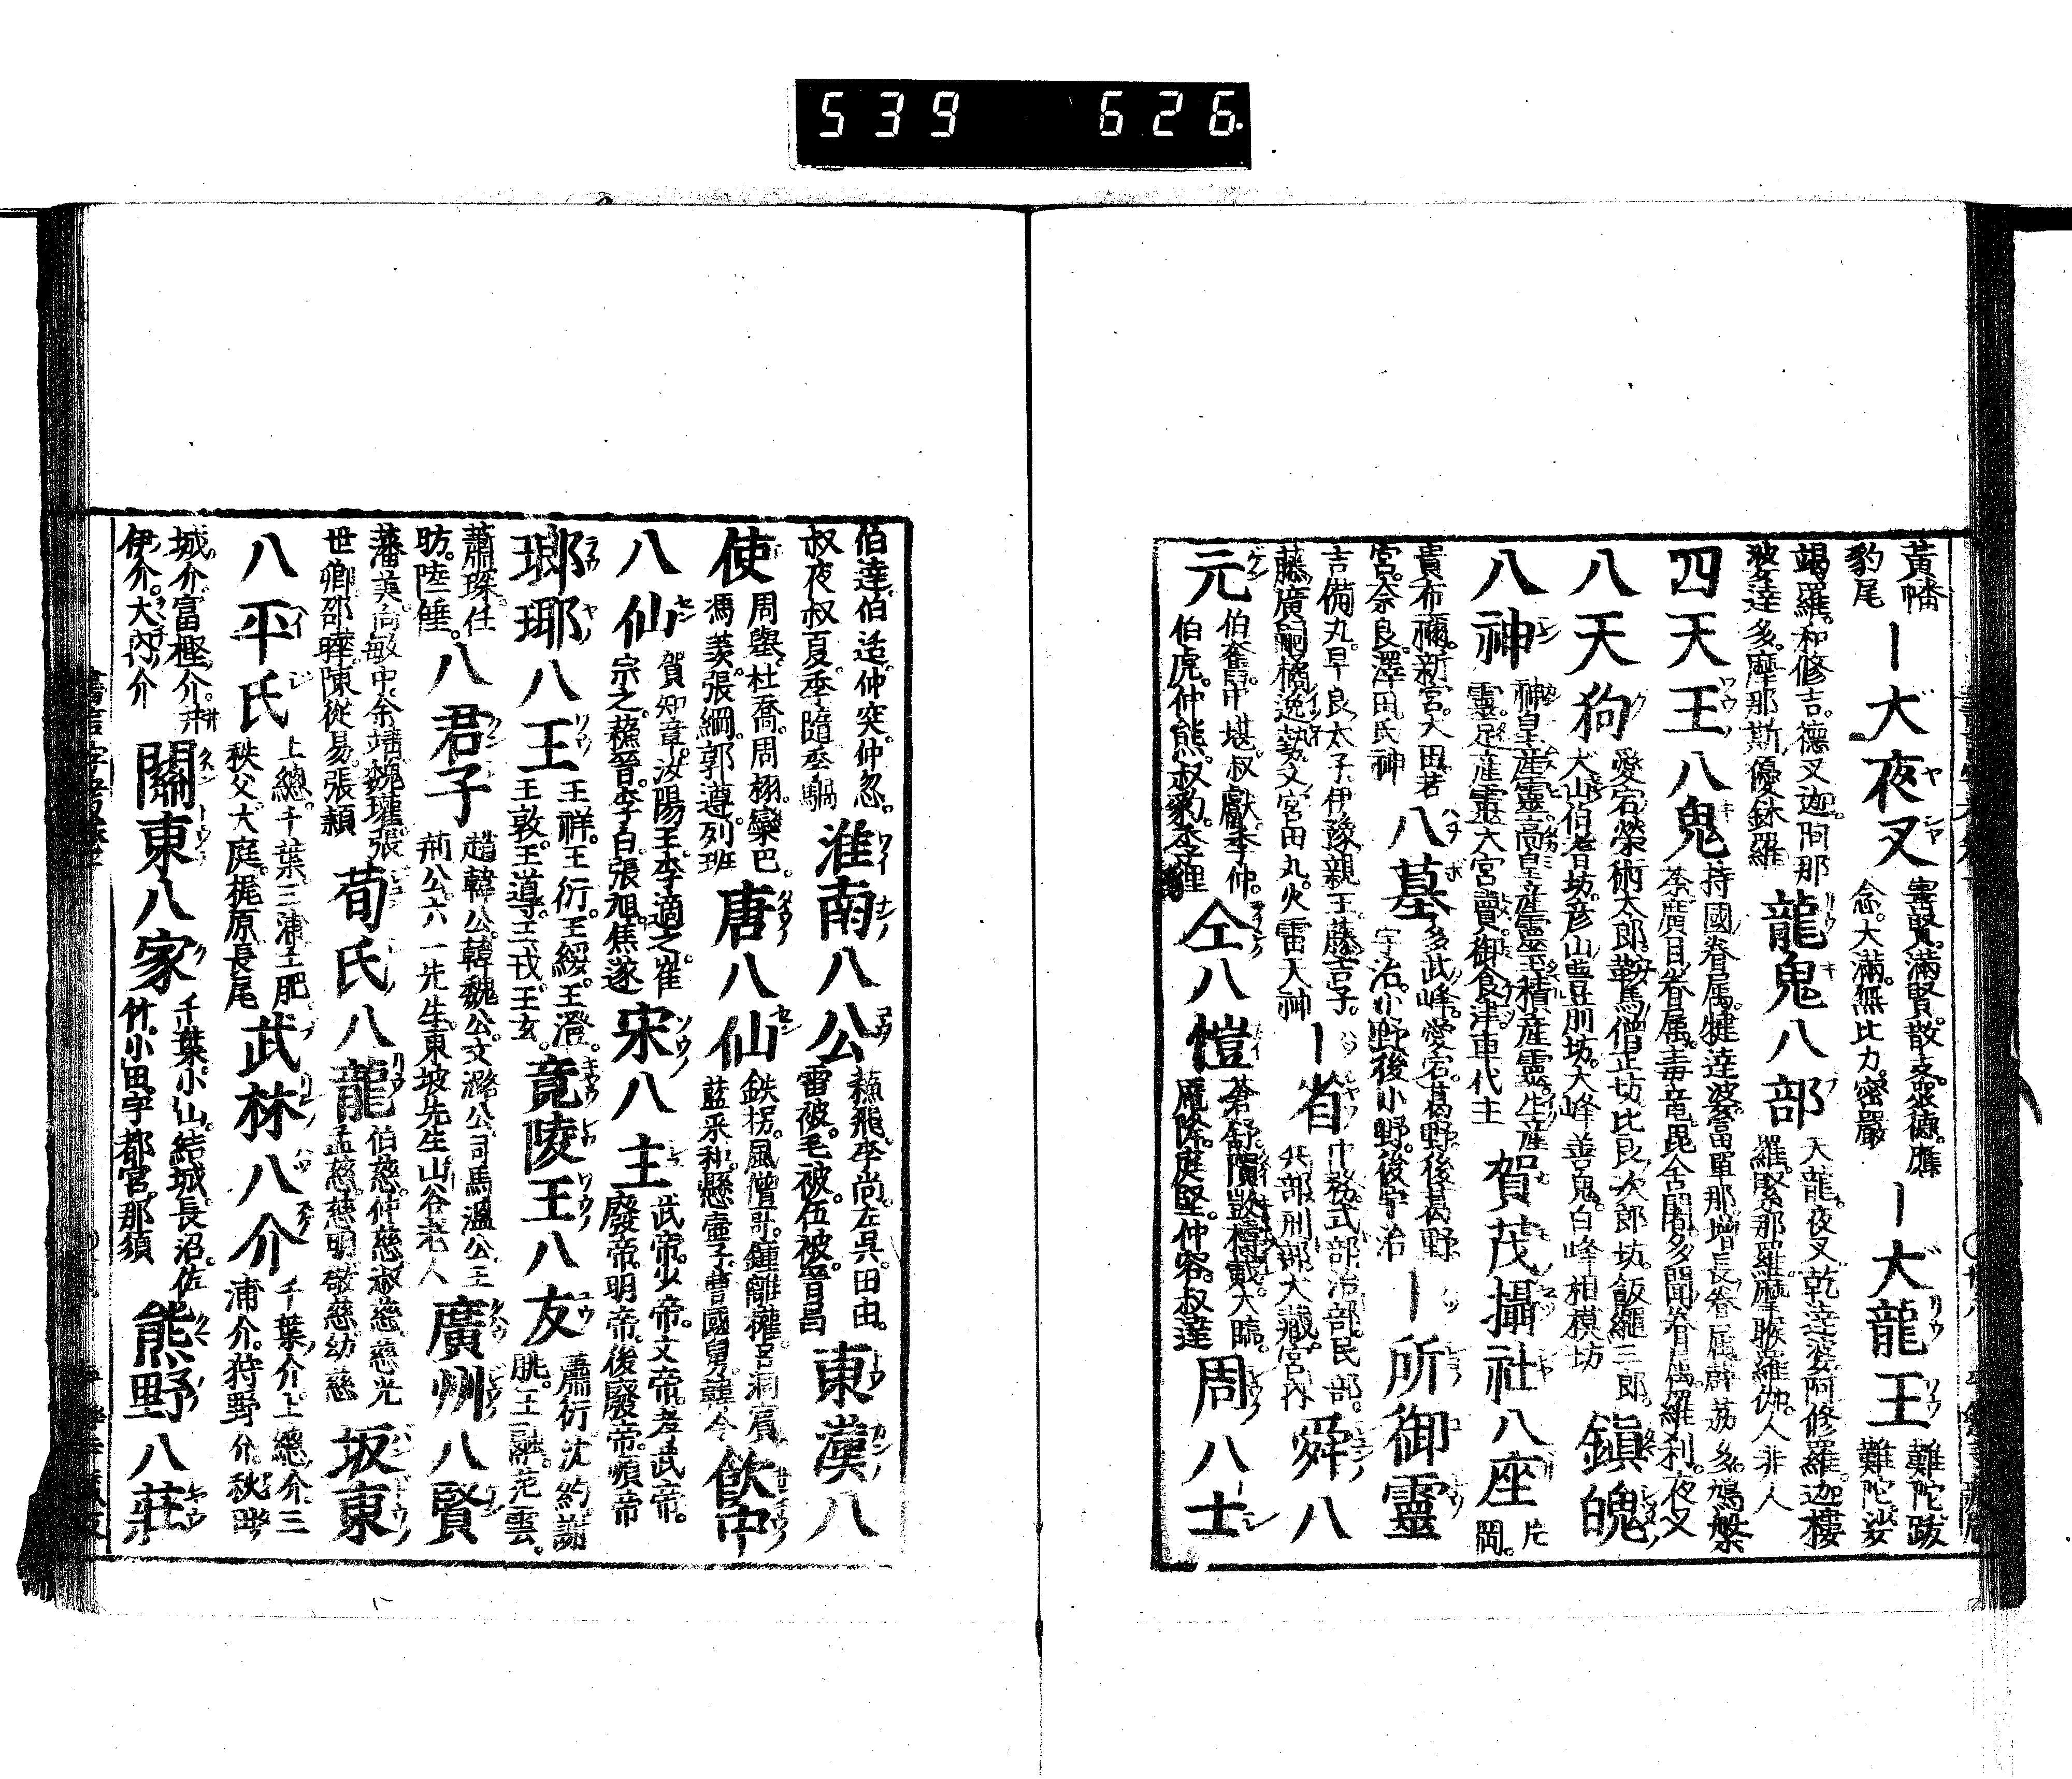 539 626
黃幡
豹尾
｜大夜叉
寶賢。滿賢。散支。眾德。應
念。大滿。無比力。密嚴
｜大龍王
難陀跋
難陀。娑
竭羅。和修吉。德叉迦。阿那
婆達多。摩那斯。優鉢羅
龍鬼八部
天龍。夜叉。乾達婆。阿修羅。迦樓
羅。緊那羅。摩睺羅伽。人非人
四天王八鬼
持國眷属。犍達婆。富單那。增長眷属。薜茘多。鳩槃
荼。廣目眷属。毒竜。毘舎闍。多聞眷属。羅刹。夜叉
八天狗
愛宕榮術太郎。鞍馬僧正坊。比良次郎坊。飯繩三郎。
大山伯耆坊。彦山豊前坊。大峰善鬼。白峰相模坊
鎭魄
八神
神皇産靈。高皇産靈。玉積産靈。生産
靈。足産靈。大宮賣。御食津。事代主
賀茂攝社八座
片
岡。
貴布禰。新宮。大田。若
宮。奈良。澤田。氏神
八墓
多武峰。愛宕。葛野。後葛野
宇治。小野。後小野。後宇治
｜所御靈
吉備丸。早良太子。伊豫親王。藤吉子。
藤廣嗣。橘逸勢。文宮田丸。火雷天神
｜省
中務。式部。治部。民部。
兵部。刑部。大藏。宮内
舜八
元
伯奮。仲堪。叔獻。季仲。
伯虎。仲熊。叔豹。季狸
仝八愷
蒼舒。隤敱。檮戭。大臨。
厖降。庭堅。仲容。叔達
周八士
伯達。伯适。仲突。仲忽。
叔夜。叔夏。季隨。季騧
淮南八公
蘓飛。李尚。左呉。田由。
雷被。毛被。伍被。晋昌
東漢八
使
周舉。杜喬。周栩。欒巴。
馮羨。張綱。郭遵。列班
唐八仙
鉄拐。風僧哥。鍾離權。呂洞賓
藍采和。懸壷子。曹國舅。韓令
飲中
八仙
賀知章。汝陽王。李適之。崔
宗之。蘓晉。李白。張旭。焦遂
宋八主
武帝。少帝。文帝。孝武帝。
廢帝。明帝。後廢帝。順帝
瑯琊八王
王祥。王衍。王綏。王澄。
王敦。王導。王戎。王玄。
竟陵王八友
蕭衍。沈約。謝
朓。王融。范雲。
蕭琛。任
昉。陸倕。
八君子
趙韓公。韓魏公。文潞公。司馬溫公。王
荊公。六一先生。東坡先生。山谷老人
廣州八賢
藩美。向敏中。余靖。魏瓘。張
世卿。邵曄。陳從易。張頴
荀氏八龍
伯慈。仲慈。叔慈。慈光
孟慈。慈明。敬慈。幼慈
坂東
八平氏
上總。千葉。三浦。土肥。
秩父。大庭。梶原。長尾
武林八介
千葉介。上總介。三
浦介。狩野介。秋田
城介。富樫介。井
伊介。大内介
關東八家
千葉。小山。結城。長沼。佐
竹。小田。宇都宮。那須
熊野八莊